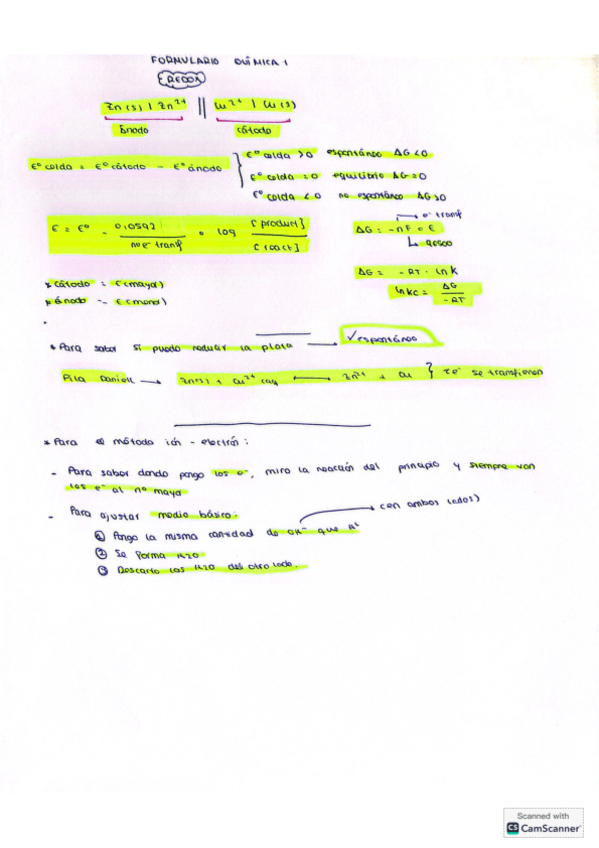 FORMULARIO QUÍMICA 1
REDOX
Zn(s) | Zn²⁺ || Cu²⁺ | Cu(s)
Ánodo cátodo
E° celda = E° cátodo - E° ánodo
E° celda > 0 espontáneo ΔG < 0
E° celda = 0 equilibrio ΔG = 0
E° celda < 0 no espontáneo ΔG > 0
E = E° - 0,0592 / n e⁻ transf • log [product] / [react]
e⁻ transf
ΔG = -n F • E
96500
ΔG = -RT · ln K
ln Kc = ΔG / -RT
* cátodo = E (mayor)
* ánodo = E (menor)
* Para saber si puedo reducir la plata → ✓ espontáneo
Pila Daniell → Zn(s) + Cu²⁺ (aq) ⟷ Zn²⁺ + Cu } 2e⁻ se transfieren
* Para el método ión - electrón:
- Para saber donde pongo los e⁻, miro la reacción del principio y siempre van
los e⁻ al nº mayor
- Para ajustar medio básico:
① Pongo la misma cantidad de OH⁻ que H⁺ → (en ambos lados)
② Se forma H2O
③ Descarto los H2O del otro lado.
Scanned with
CS CamScanner